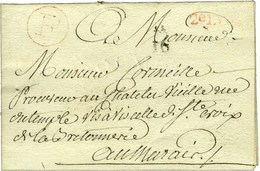 A Monsieur
Monsieur Corneille
Procureur au Chatelet Vieille rue
du temple vis a vis celle de Ste Croix
de la Bretonnerie
au Marais